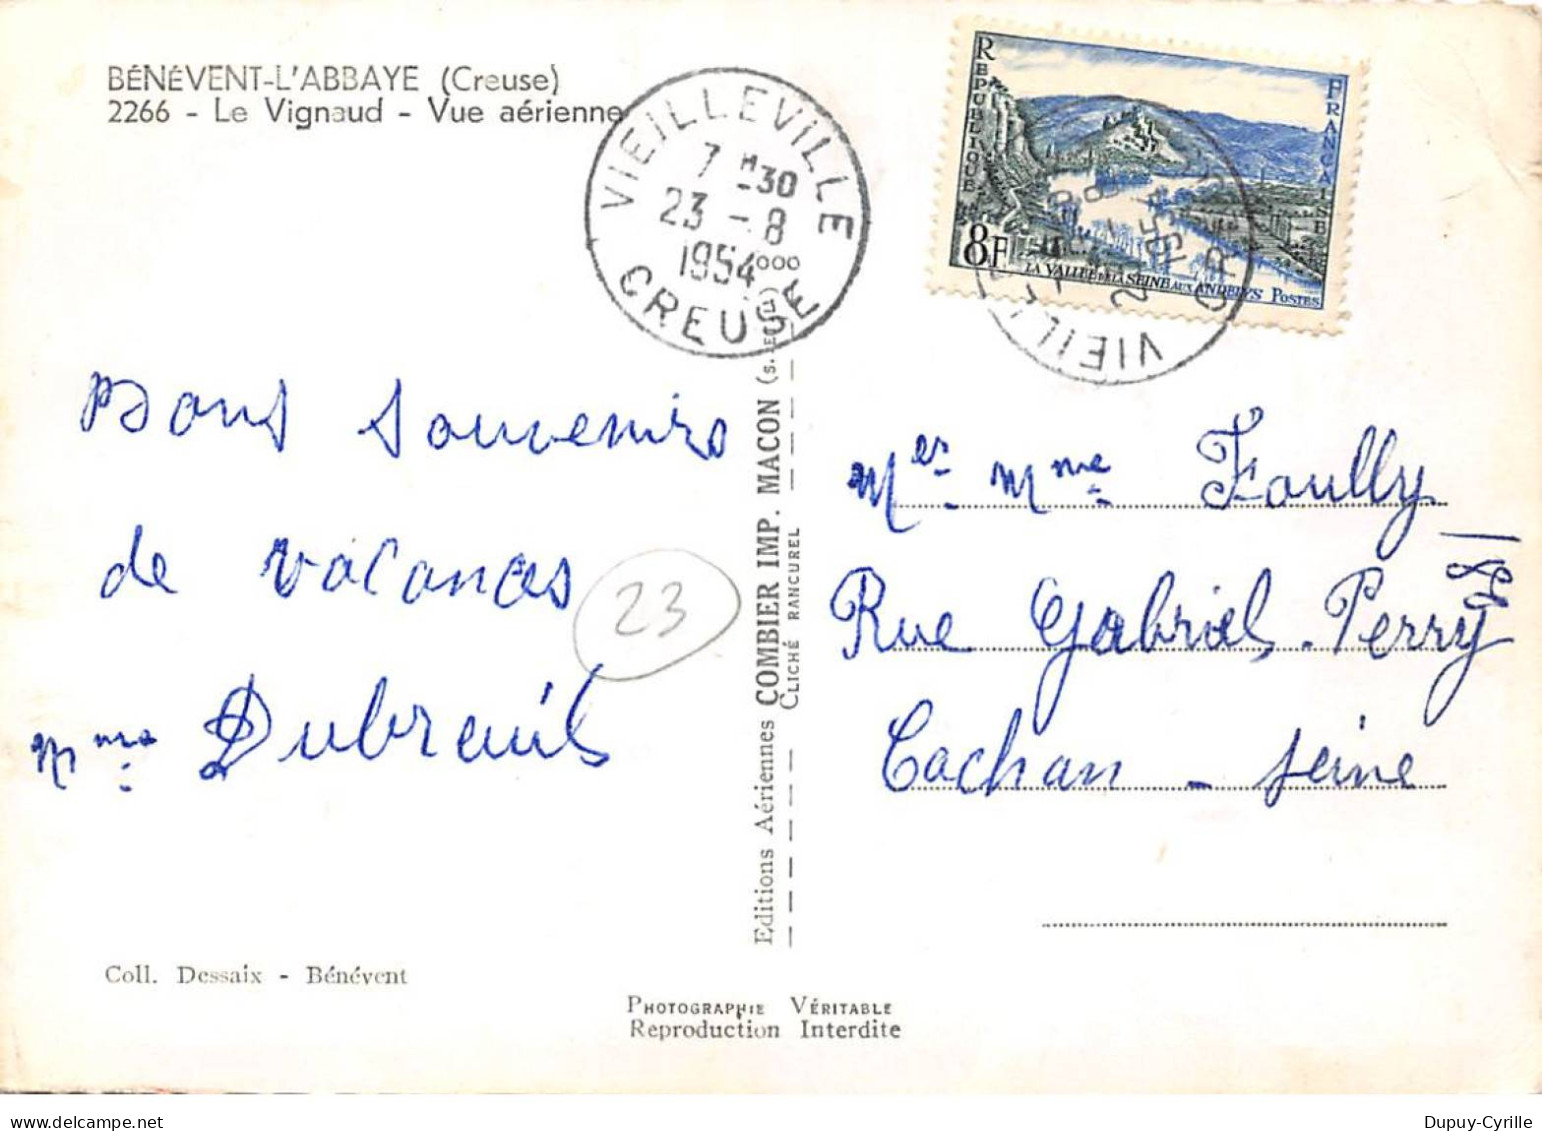 BÉNÉVENT-L'ABBAYE (Creuse)
2266 - Le Vignaud - Vue aérienne
VIEILLEVILLE
7 H 30
23 - 8
1954
CREUSE
REPUBLIQUE FRANCAISE
8F
LA VALLÉE DE LA SEINE AUX ANDELYS POSTES
VIEILL
Bons souvenirs
de vacances
Mme Dubreuil
23
Mer Mme Foully
Rue Gabriel Perry
Cachan - Seine
Editions Aériennes COMBIER IMP. MACON (S.
CLICHÉ RANCUREL
Coll. Dessaix - Bénévent
PHOTOGRAPHIE VÉRITABLE
Reproduction Interdite
Dupuy-Cyrille